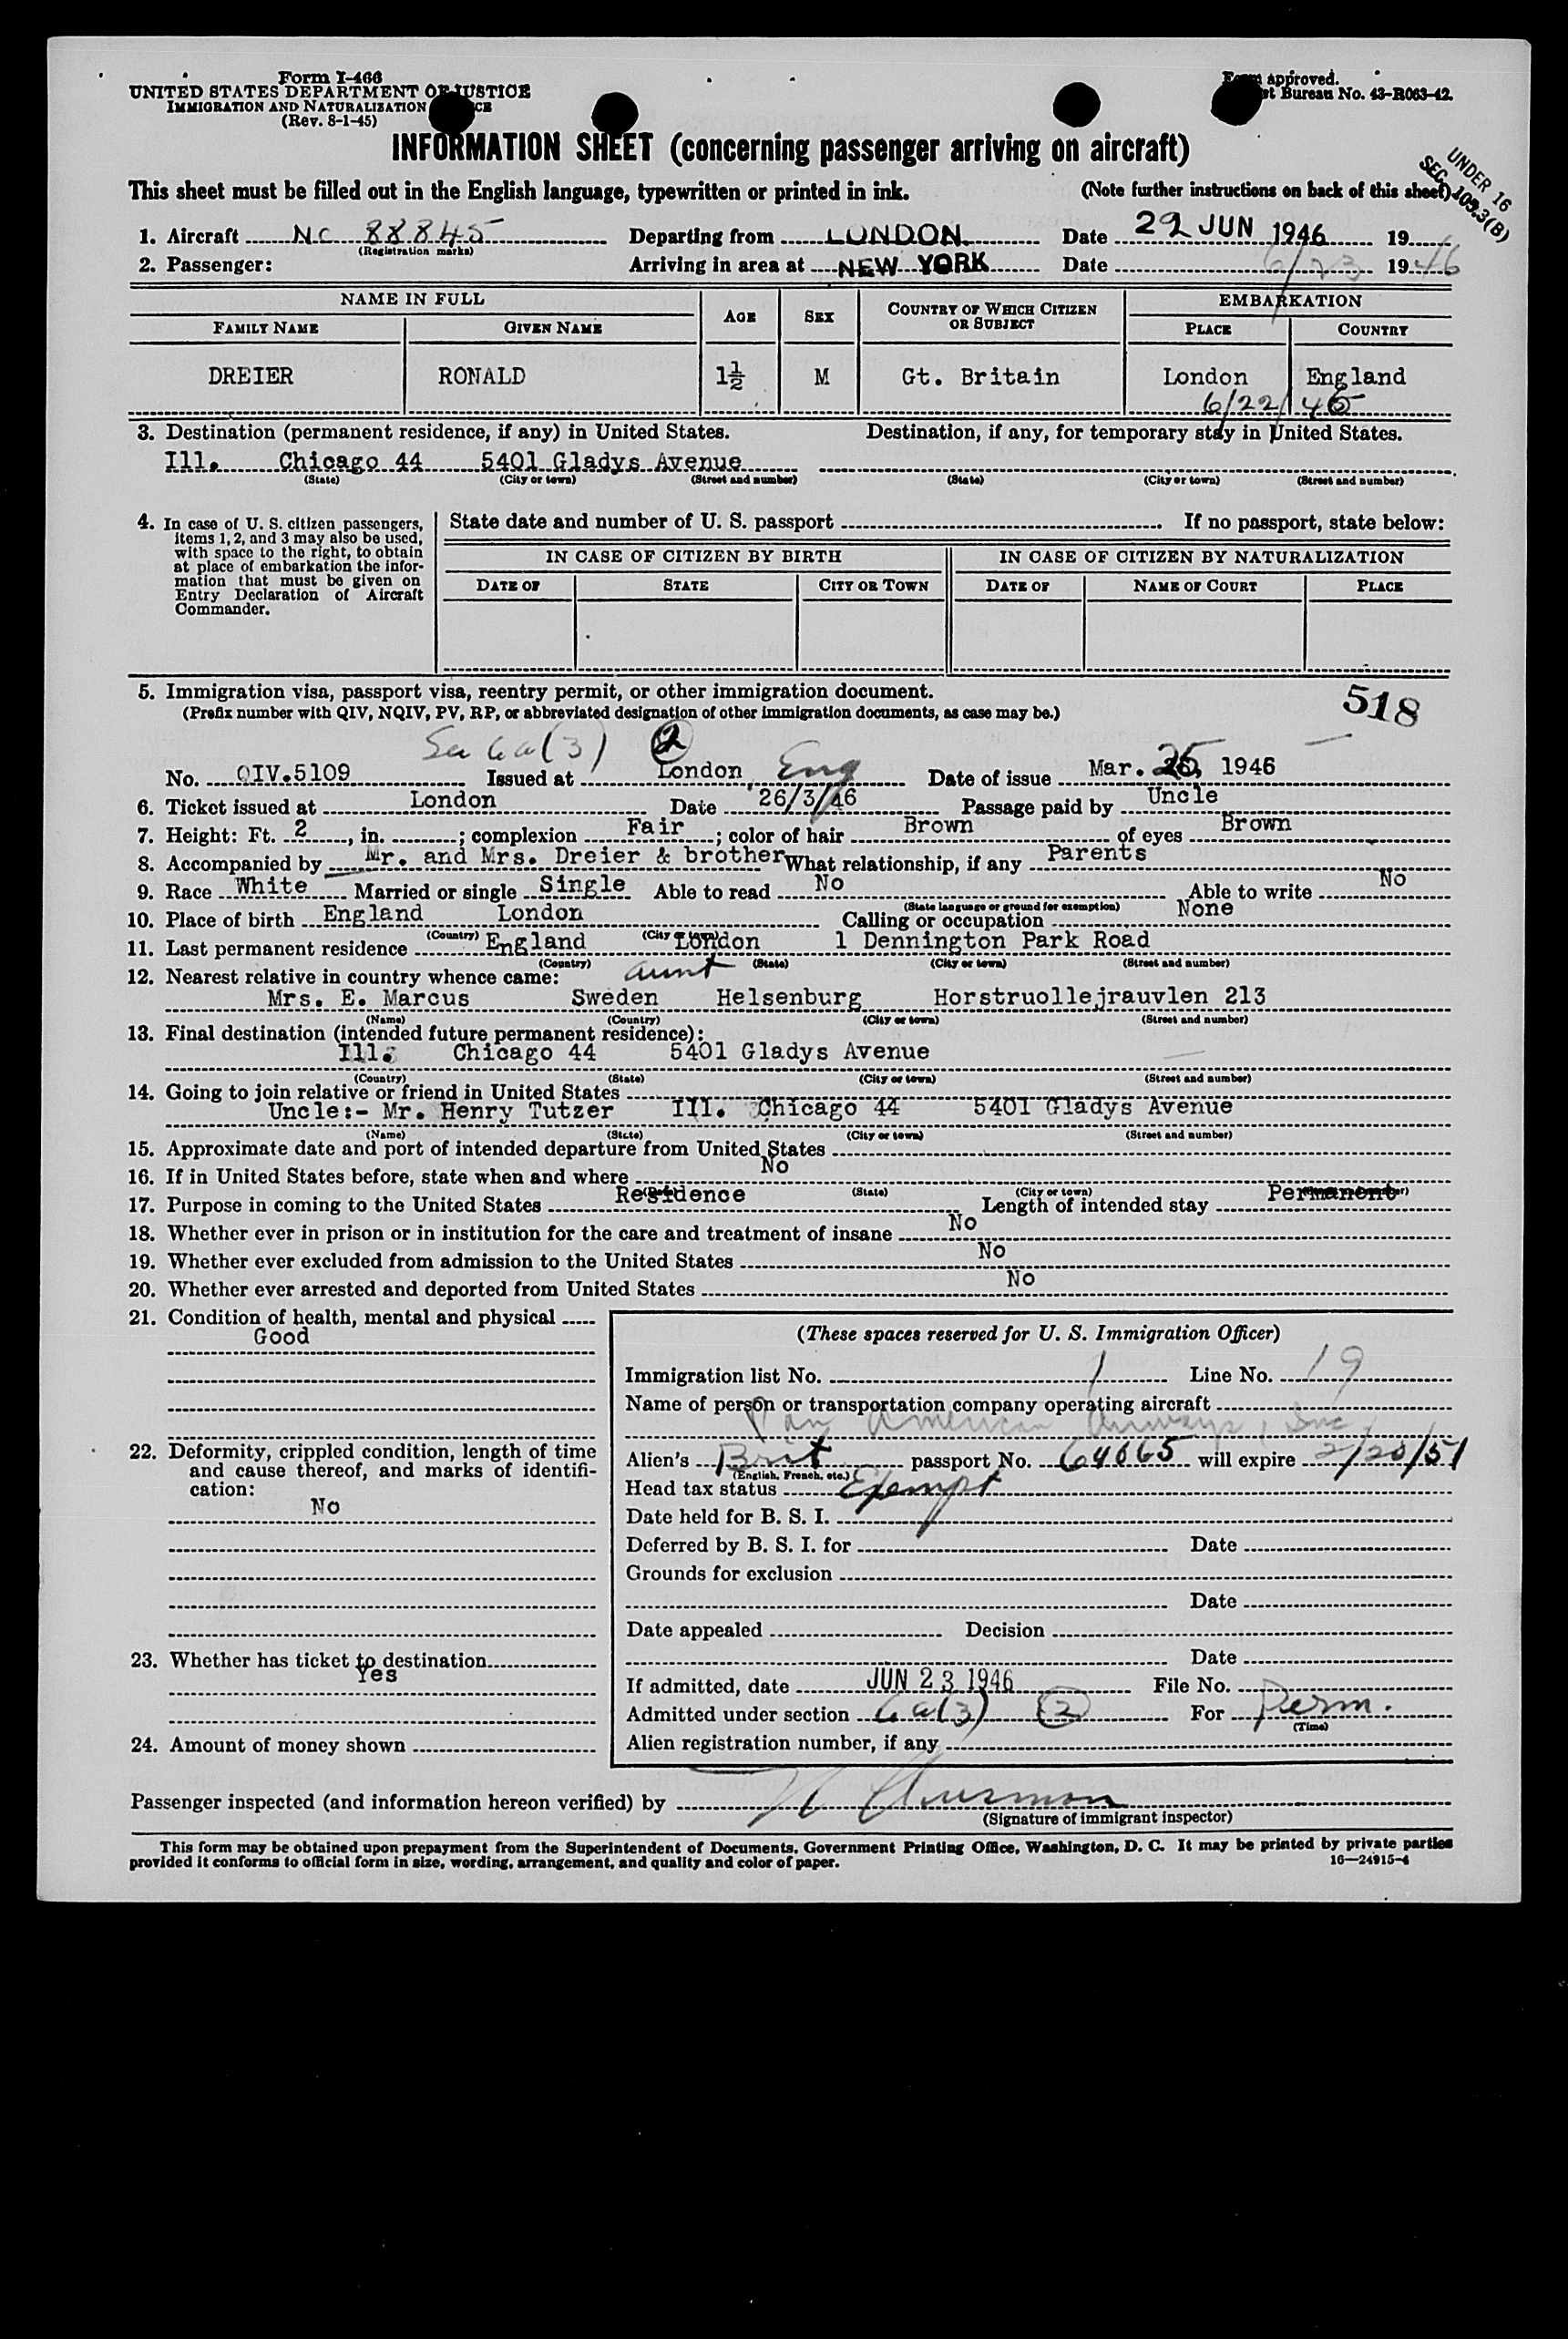 Form I-466
UNITED STATES DEPARTMENT OF JUSTICE
IMMIGRATION AND NATURALIZATION
(Rev. 8-1-45)
Form approved.
Bureau No. 43-R063-42.
INFORMATION SHEET (concerning passenger arriving on aircraft)
UNDER 16
SEC. 105.3(B)
This sheet must be filled out in the English language, typewritten or printed in ink. (Note further instructions on back of this sheet)
1. Aircraft NC 88845 Departing from LONDON Date 22 JUN 1946 19
(Registration marks)
2. Passenger: Arriving in area at NEW YORK Date 6/23 1946
NAME IN FULL AGE SEX COUNTRY OF WHICH CITIZEN OR SUBJECT EMBARKATION
FAMILY NAME GIVEN NAME PLACE COUNTRY
DREIER RONALD 1½ M Gt. Britain London England
6/22/46
3. Destination (permanent residence, if any) in United States. Destination, if any, for temporary stay in United States.
Ill. Chicago 44 5401 Gladys Avenue
(State) (City or town) (Street and number) (State) (City or town) (Street and number)
4. In case of U. S. citizen passengers, items 1, 2, and 3 may also be used, with space to the right, to obtain at place of embarkation the information that must be given on Entry Declaration of Aircraft Commander.
State date and number of U. S. passport . If no passport, state below:
IN CASE OF CITIZEN BY BIRTH IN CASE OF CITIZEN BY NATURALIZATION
DATE OF STATE CITY OR TOWN DATE OF NAME OF COURT PLACE
5. Immigration visa, passport visa, reentry permit, or other immigration document.
(Prefix number with QIV, NQIV, PV, RP, or abbreviated designation of other immigration documents, as case may be.)
518
6a(3) 2
No. QIV.5109 Issued at London, Eng Date of issue Mar. 25, 1946
6. Ticket issued at London Date 26/3/46 Passage paid by Uncle
7. Height: Ft. 2, in. ; complexion Fair; color of hair Brown of eyes Brown
8. Accompanied by Mr. and Mrs. Dreier & brother What relationship, if any Parents
9. Race White Married or single Single Able to read No Able to write No
(State language or ground for exemption)
10. Place of birth England London Calling or occupation None
(Country) (City or town)
11. Last permanent residence England London 1 Dennington Park Road
(Country) (State) (City or town) (Street and number)
12. Nearest relative in country whence came: aunt
Mrs. E. Marcus Sweden Helsenburg Horstruollejrauvlen 213
(Name) (Country) (City or town) (Street and number)
13. Final destination (intended future permanent residence):
Ill. Chicago 44 5401 Gladys Avenue
(Country) (State) (City or town) (Street and number)
14. Going to join relative or friend in United States
Uncle:- Mr. Henry Tutzer Ill. Chicago 44 5401 Gladys Avenue
(Name) (State) (City or town) (Street and number)
15. Approximate date and port of intended departure from United States
16. If in United States before, state when and where No
(State) (City or town)
17. Purpose in coming to the United States Residence Length of intended stay Permanent
18. Whether ever in prison or in institution for the care and treatment of insane No
19. Whether ever excluded from admission to the United States No
20. Whether ever arrested and deported from United States No
21. Condition of health, mental and physical
Good
22. Deformity, crippled condition, length of time and cause thereof, and marks of identification:
No
23. Whether has ticket to destination
Yes
24. Amount of money shown
(These spaces reserved for U. S. Immigration Officer)
Immigration list No. 1 Line No. 19
Name of person or transportation company operating aircraft
Pan American Airways, Inc.
Alien's Brit passport No. 64665 will expire 2/20/51
(English, French, etc.)
Head tax status Exempt
Date held for B. S. I.
Deferred by B. S. I. for Date
Grounds for exclusion
Date
Date appealed Decision
Date
If admitted, date JUN 23 1946 File No.
Admitted under section 6a(3) 2 For Perm.
(Time)
Alien registration number, if any
Passenger inspected (and information hereon verified) by
(Signature of immigrant inspector)
This form may be obtained upon prepayment from the Superintendent of Documents, Government Printing Office, Washington, D. C. It may be printed by private parties
provided it conforms to official form in size, wording, arrangement, and quality and color of paper. 16—24915-4